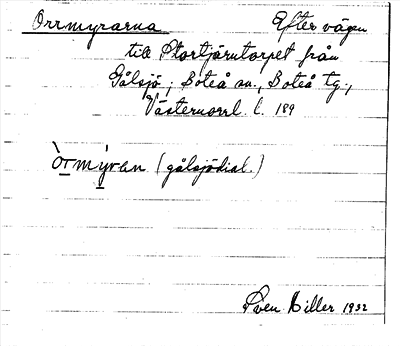 Orrmyrarna Efter vägen
till Stortjärntorpet från
Gålsjö, Boteå sn., Boteå tg.,
Västernorrl. l. 189
òrmýran (gålsjödial.)
Sven Hiller 1932